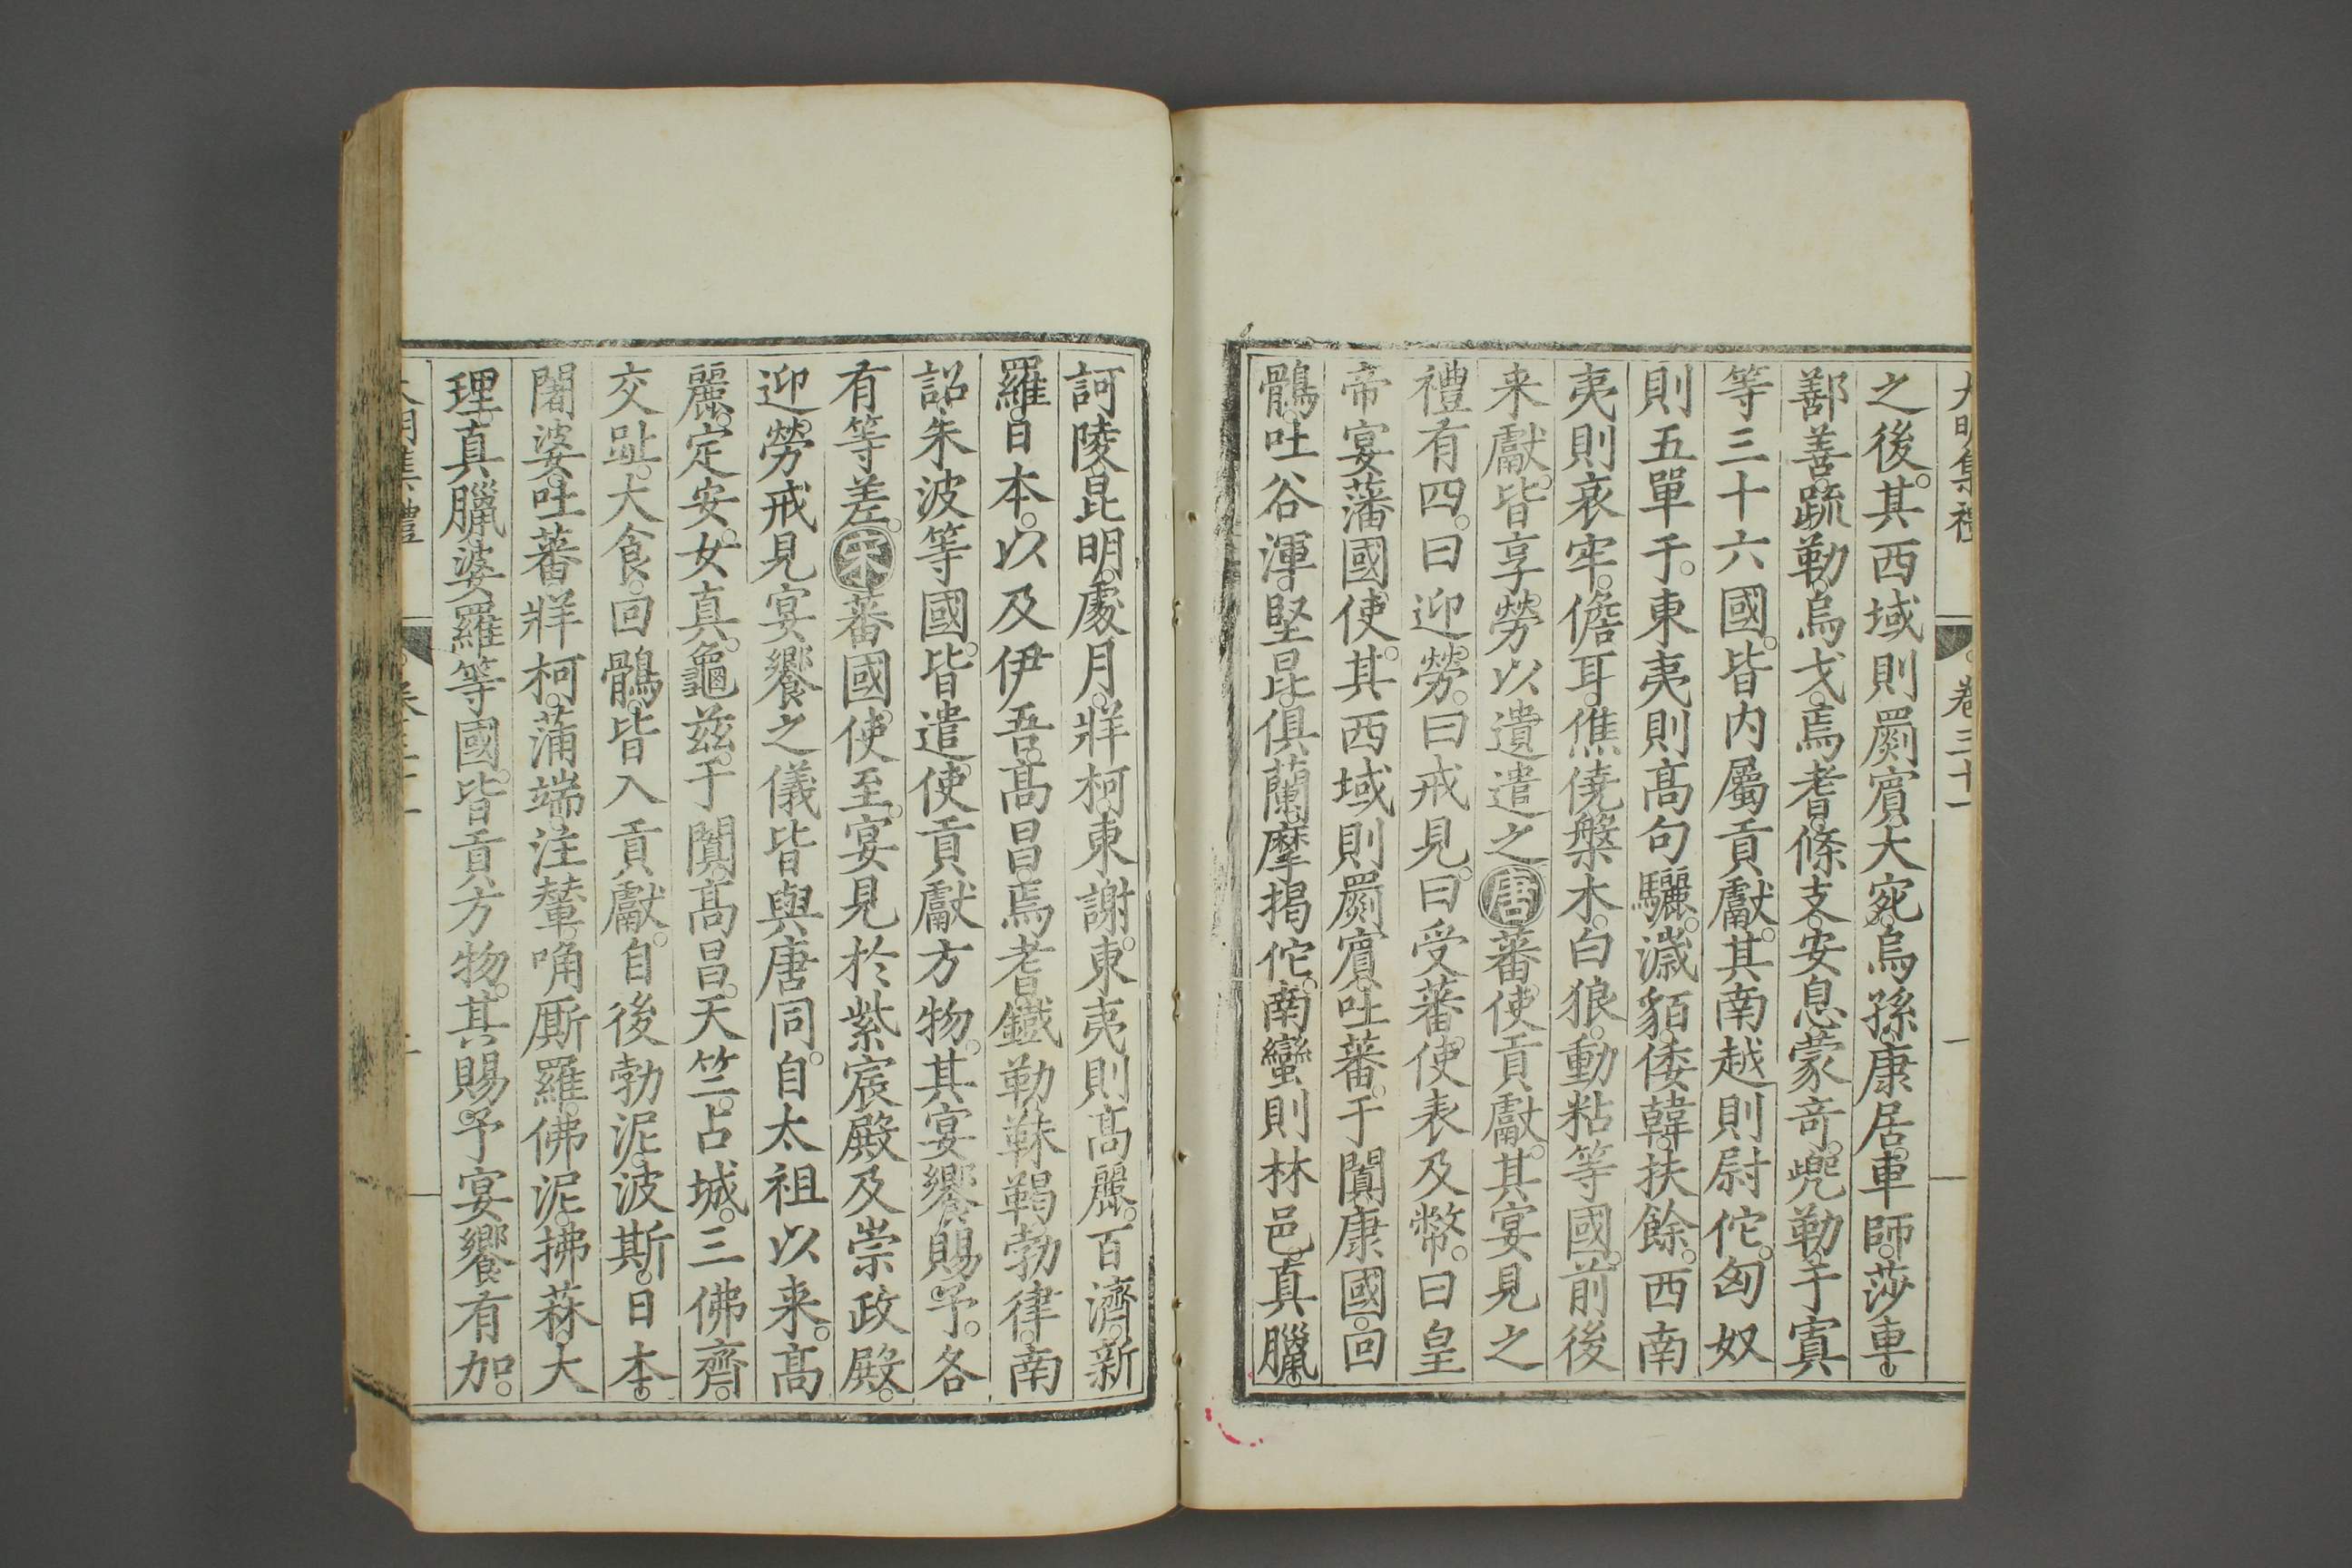 大明集禮
卷三十一
之後。其西域則罽賓。大宛。烏孫。康居。車師。莎車。
鄯善。䟽勒。烏戈。焉耆。條支。安息。蒙奇。兜勒。于寘
等三十六國。皆内屬貢獻。其南越則尉佗。匈奴
則五單于。東夷則髙句驪。濊貊。倭韓。扶餘。西南
夷則哀牢。儋耳。僬僥。槃木。白狼。動粘等國。前後
来獻。皆享勞以遺遣之唐蕃使貢獻。其宴見之
禮有四。曰迎勞。曰戒見。曰受蕃使表及幣。曰皇
帝宴蕃國使。其西域則罽賓。吐蕃。于闐。康國。回
鶻。吐谷渾。堅昆。俱蘭。摩揭佗。南蠻則林邑。真臘。
訶陵。昆明。處月。牂柯。東謝。東夷則髙麗。百濟。新
羅。日本。以及伊吾。髙昌。焉耆。鐵勒。靺鞨。勃律。南
詔。朱波等國。皆遣使貢獻方物。其宴饗賜予。各
有等差。宋蕃國使至。宴見於紫宸殿及崇政殿。
迎勞戒見宴饗之儀皆與唐同。自太祖以来。髙
麗。定安。女真。龜兹。于闐。髙昌。天竺。占城。三佛齊。
交趾。大食。回鶻。皆入貢獻。自後勃泥。波斯。日本。
闍婆。吐蕃。牂柯。蒲端。注輦。唃厮羅。佛泥。拂菻。大
理。真臘。婆羅等國。皆貢方物。其賜予宴饗有加。